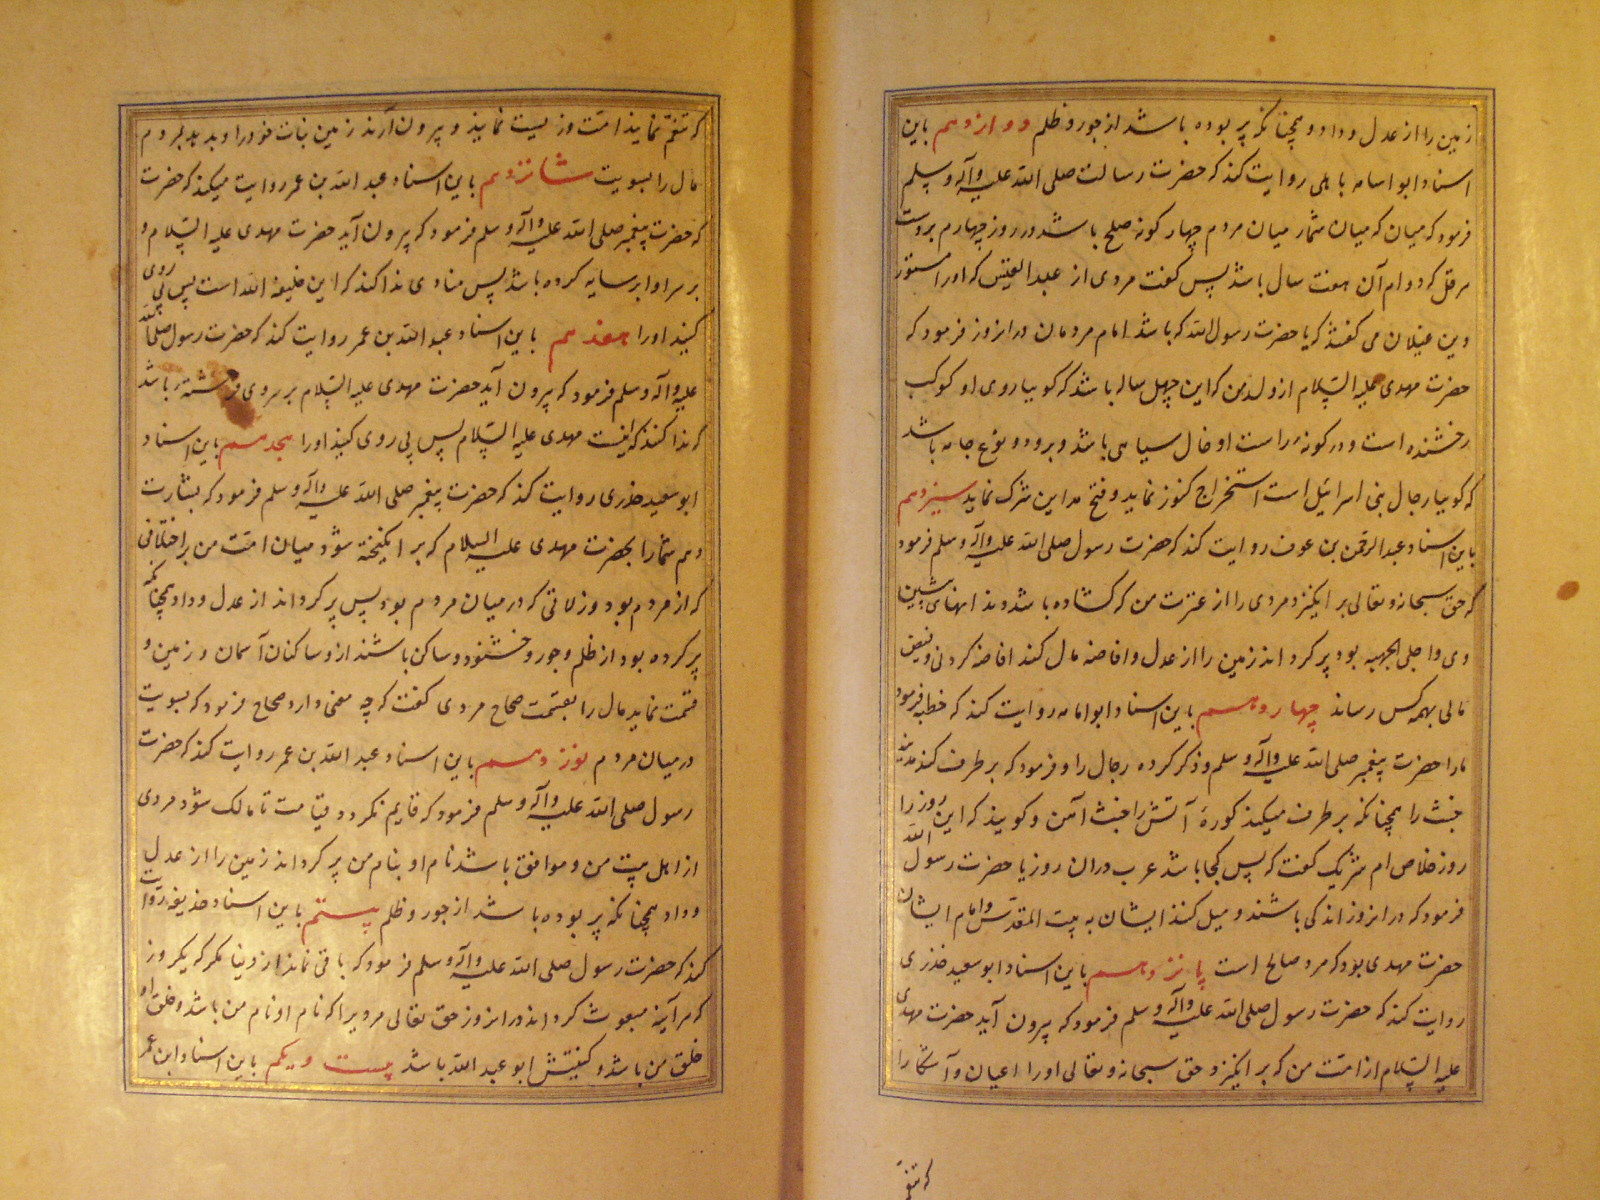 زمین را از عدل و داد و همچنانکه پر بوده باشد از جور و ظلم دوازدهم باین
اسناد ابو اسامه باهلی روایت کند که حضرت رسالت صلی الله علیه وآله وسلم
فرمود که میان که میان شمار میان مردم چهار کونه صلح باشد در روز چهارم بردست
هرقل که دوام آن هفت سال باشد پس کفت مردی از عبد القیس که او را مستور
دین غیلان می کفتند که یا حضرت رسول الله که باشد امام مردمان در انروز فرمود که
حضرت مهدی علیه السلام از ولد من که این چهل ساله باشد که کوییا روی او کوکب
رخشنده است و در کونه راست او خال سیاهی باشد و برو دو نوع جامه باشد
که کوییا رجال بنی اسرائیل است استخراج کنوز نماید و فتح مداین شرک نماید سیزدهم
باین اسناد عبد الرحمن بن عوف روایت کند که حضرت رسول صلی الله علیه وآله وسلم فرمود
که حق سبحانه و تعالی بر انکیزد مردی را از عترت من که کشاده باشد دندانهای پیشین
وی و اجلی الجبهه بود پر کرداند زمین را از عدل و افاضه مال کند افاضه کردنی و فیض
مالی بهمه کس رساند چهاردهم باین اسناد ابو امامه روایت کند که خطبه فرمود
مارا حضرت پیغمبر صلی الله علیه وآله وسلم و ذکر کرده رجال را و فرمود که بر طرف کند مدینه
خبث را همچنانکه بر طرف میکند کورۀ آتش را خبث آهن و کویند که این روز را
روز خلاص ام شریک کفت که پس کجا باشد عرب دران روز یا حضرت رسول الله
فرمود که در انروز اندکی باشند و میل کنند ایشان به بیت المقدس و امام ایشان
حضرت مهدی بود که مرد صالح است پانزدهم باین اسناد ابو سعید خدری
روایت کند که حضرت رسول صلی الله علیه وآله وسلم فرمود که بیرون آید حضرت مهدی
علیه السلام از امت من که بر انکیزد حق سبحانه و تعالی او را اعیان و آشکارا
که تنعم
که تنعم نمایند امت و زیست نمایند و بیرون آرند زمین نبات خود را و بدهد بمردم
مال را بسویت شانزدهم باین اسناد عبد الله بن عمر روایت میکند که حضرت
که حضرت پیغمبر صلی الله علیه وآله وسلم فرمود که بیرون آید حضرت مهدی علیه السلام و
بر سر او ابر سایه کرده باشد پس منادی ندا کند که این خلیفه الله است پس پی روی
کنید او را هفدهم باین اسناد عبد الله بن عمر روایت کند که حضرت رسول صلی الله
علیه وآله وسلم فرمود که بیرون آید حضرت مهدی علیه السلام بر سروی فرشته باشد
که ندا کند که اینست مهدی علیه السلام پس پی روی کنید او را هجدهم باین اسناد
ابو سعید خدری روایت کند که حضرت پیغمبر صلی الله علیه وآله وسلم فرمود که بشارت
دهم شمارا بحضرت مهدی علیه السلام که بر انکیخته شود میان امت من بر اختلافی
که از مردم بود و زلاتی که در میان مردم بود پس پر کرداند از عدل و داد همچنانکه
پر کرده بود از ظلم و جور و خشنود و ساکن باشند ازو ساکنان آسمان و زمین و
قسمت نماید مال را بقسمت صحاح مردی کفت که چه معنی دارد صحاح فرمود که بسویت
در میان مردم نوزدهم باین اسناد عبد الله بن عمر روایت کند که حضرت
رسول صلی الله علیه وآله وسلم فرمود که قایم نکردد قیامت تا مالک شود مردی
از اهل بیت من و موافق باشد نام او بنام من پر کرداند زمین را از عدل
و داد همچنانکه پر بوده باشد از جور و ظلم بیستم باین اسناد حذیفه روایت
کند که حضرت رسول صلی الله علیه وآله وسلم فرمود که باقی نماند از دنیا مکر که یکروز
که هر آینه مبعوث کرداند در انروز حق تعالی مردیرا که نام او نام من باشد و خلق او
خلق من باشد و کنیتش ابو عبد الله باشد بیست و یکم باین اسناد ابن عمر